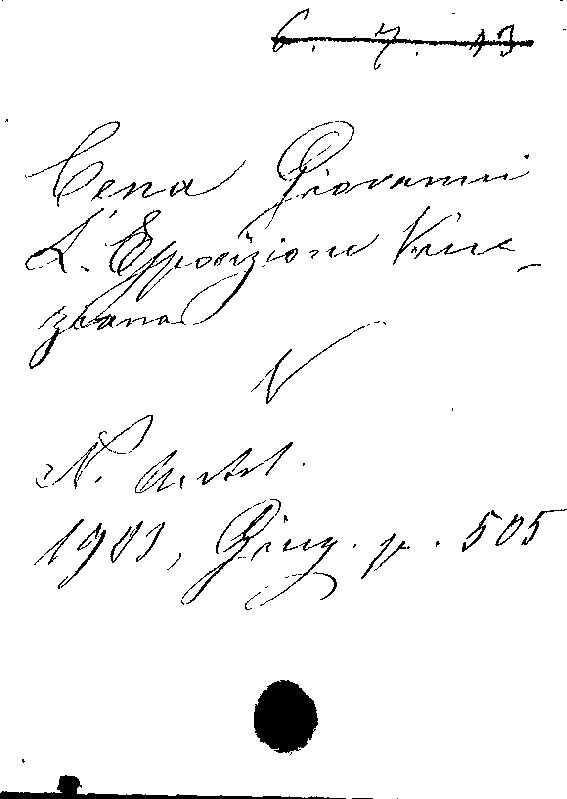 6. 7. 13
Cena Giovanni
L'Esposizione Vene-
ziana
V
N. Antol.
1901, Giug. p. 505